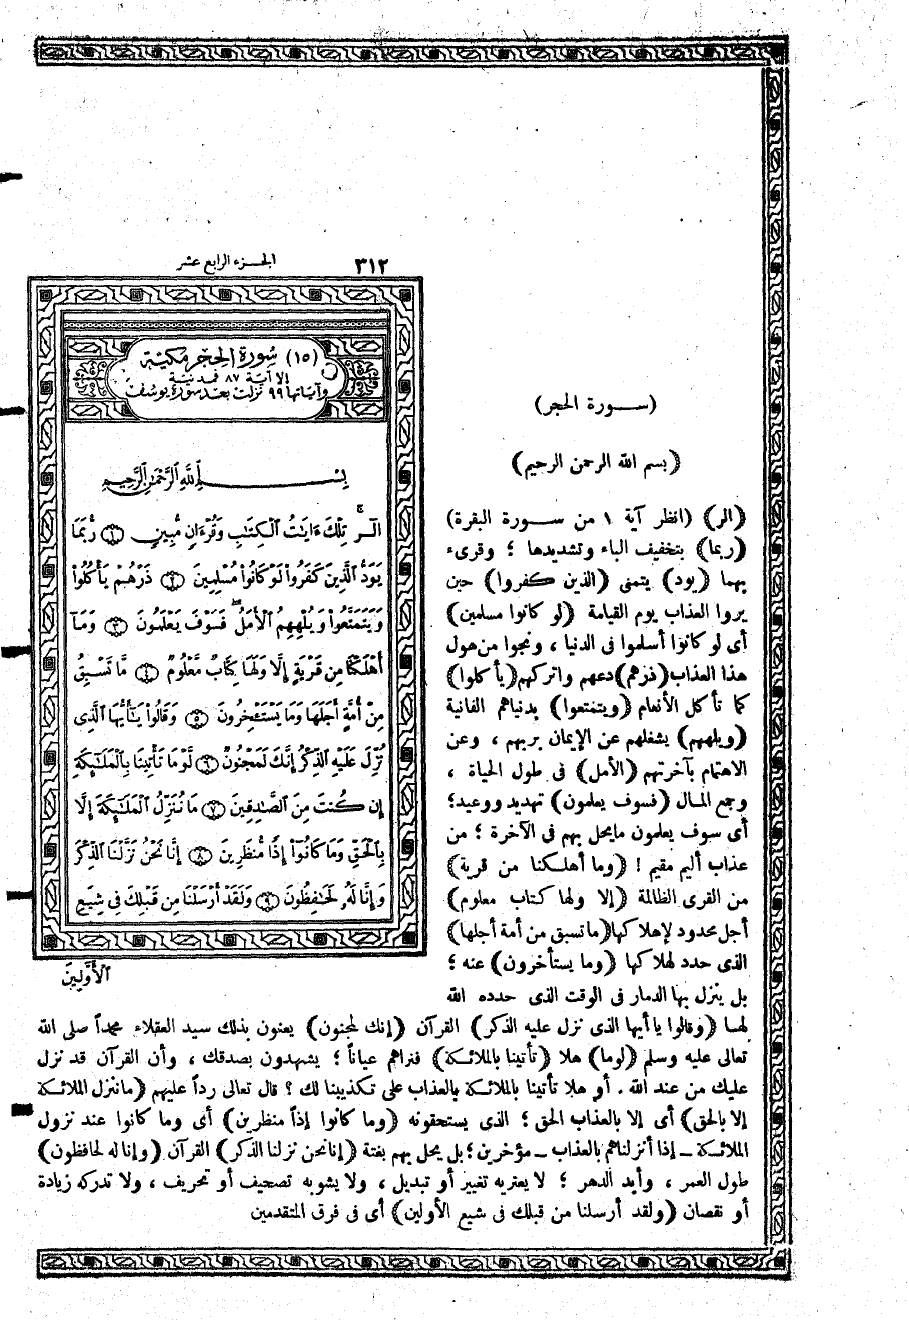 الجزء الرابع عشر
٣١٢
(١٥) سُورَةُ الحِجْرِ مَكِّيَّة
إلا آية ٨٧ فمدنية
وآياتها ٩٩ نزلت بعد سورة يوسف
بِسْمِ اللَّهِ الرَّحْمَٰنِ الرَّحِيمِ
الٓر تِلْكَ ءَايَٰتُ ٱلْكِتَٰبِ وَقُرْءَانٍ مُّبِينٍ ١ رُّبَمَا
يَوَدُّ ٱلَّذِينَ كَفَرُوا۟ لَوْ كَانُوا۟ مُسْلِمِينَ ٢ ذَرْهُمْ يَأْكُلُوا۟
وَيَتَمَتَّعُوا۟ وَيُلْهِهِمُ ٱلْأَمَلُ ۖ فَسَوْفَ يَعْلَمُونَ ٣ وَمَآ
أَهْلَكْنَا مِن قَرْيَةٍ إِلَّا وَلَهَا كِتَابٌ مَّعْلُومٌ ٤ مَّا تَسْبِقُ
مِنْ أُمَّةٍ أَجَلَهَا وَمَا يَسْتَـْٔخِرُونَ ٥ وَقَالُوا۟ يَٰٓأَيُّهَا ٱلَّذِى
نُزِّلَ عَلَيْهِ ٱلذِّكْرُ إِنَّكَ لَمَجْنُونٌ ٦ لَّوْ مَا تَأْتِينَا بِٱلْمَلَٰٓئِكَةِ
إِن كُنتَ مِنَ ٱلصَّٰدِقِينَ ٧ مَا نُنَزِّلُ ٱلْمَلَٰٓئِكَةَ إِلَّا
بِٱلْحَقِّ وَمَا كَانُوٓا۟ إِذًا مُّنظَرِينَ ٨ إِنَّا نَحْنُ نَزَّلْنَا ٱلذِّكْرَ
وَإِنَّا لَهُۥ لَحَٰفِظُونَ ٩ وَلَقَدْ أَرْسَلْنَا مِن قَبْلِكَ فِى شِيَعِ
ٱلْأَوَّلِينَ
(سورة الحجر)
(بسم الله الرحمن الرحيم)
(الر) (انظر آية ١ من سورة البقرة)
(ربما) بتخفيف الباء وتشديدها ؛ وقرىء
بهما (يود) يتمنى (الذين كفروا) حين
يروا العذاب يوم القيامة (لو كانوا مسلمين)
أى لو كانوا أسلموا فى الدنيا ، ونجوا من هول
هذا العذاب (ذرهم) دعهم واتركهم (يأكلوا)
كما تأكل الأنعام (ويتمتعوا) بدنياهم الفانية
(ويلههم) يشغلهم عن الإيمان بربهم ، وعن
الاهتمام بآخرتهم (الأمل) فى طول الحياة ،
وجمع المال (فسوف يعلمون) تهديد ووعيد؛
أى سوف يعلمون مايحل بهم فى الآخرة ؛ من
عذاب أليم مقيم ! (وما أهلكنا من قرية)
من القرى الظالمة (إلا ولها كتاب معلوم)
أجل محدود لإهلاكها (ماتسبق من أمة أجلها)
الذى حدد لهلاكها (وما يستأخرون) عنه ؛
بل ينزل بها الدمار فى الوقت الذى حدده الله
لها (وقالوا يا أيها الذى نزل عليه الذكر) القرآن (إنك لمجنون) يعنون بذلك سيد العقلاء محمداً صلى الله
تعالى عليه وسلم (لوما) هلا (تأتينا بالملائكة) فنراهم عياناً ؛ يشهدون بصدقك ، وأن القرآن قد نزل
عليك من عند الله . أو هلا تأتينا بالملائكة بالعذاب على تكذيبنا لك ؟ قال تعالى رداً عليهم (ماننزل الملائكة
إلا بالحق) أى إلا بالعذاب الحق ؛ الذى يستحقونه (وما كانوا إذاً منظرين) أى وما كانوا عند نزول
الملائكة ــ إذا أنزلناهم بالعذاب ــ مؤخرين ؛ بل يحل بهم بغتة (إنا نحن نزلنا الذكر) القرآن (وإنا له لحافظون)
طول العمر ، وأبد الدهر ؛ لا يعتريه تغيير أو تبديل ، ولا يشوبه تصحيف أو تحريف ، ولا تدركه زيادة
أو نقصان (ولقد أرسلنا من قبلك فى شيع الأولين) أى فى فرق المتقدمين